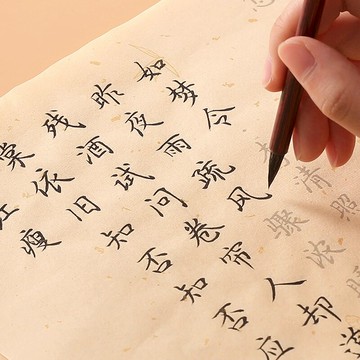 如梦令 李清照
昨夜雨疏风骤浓
残酒试问卷帘人却
棠依旧知否知否应
红瘦